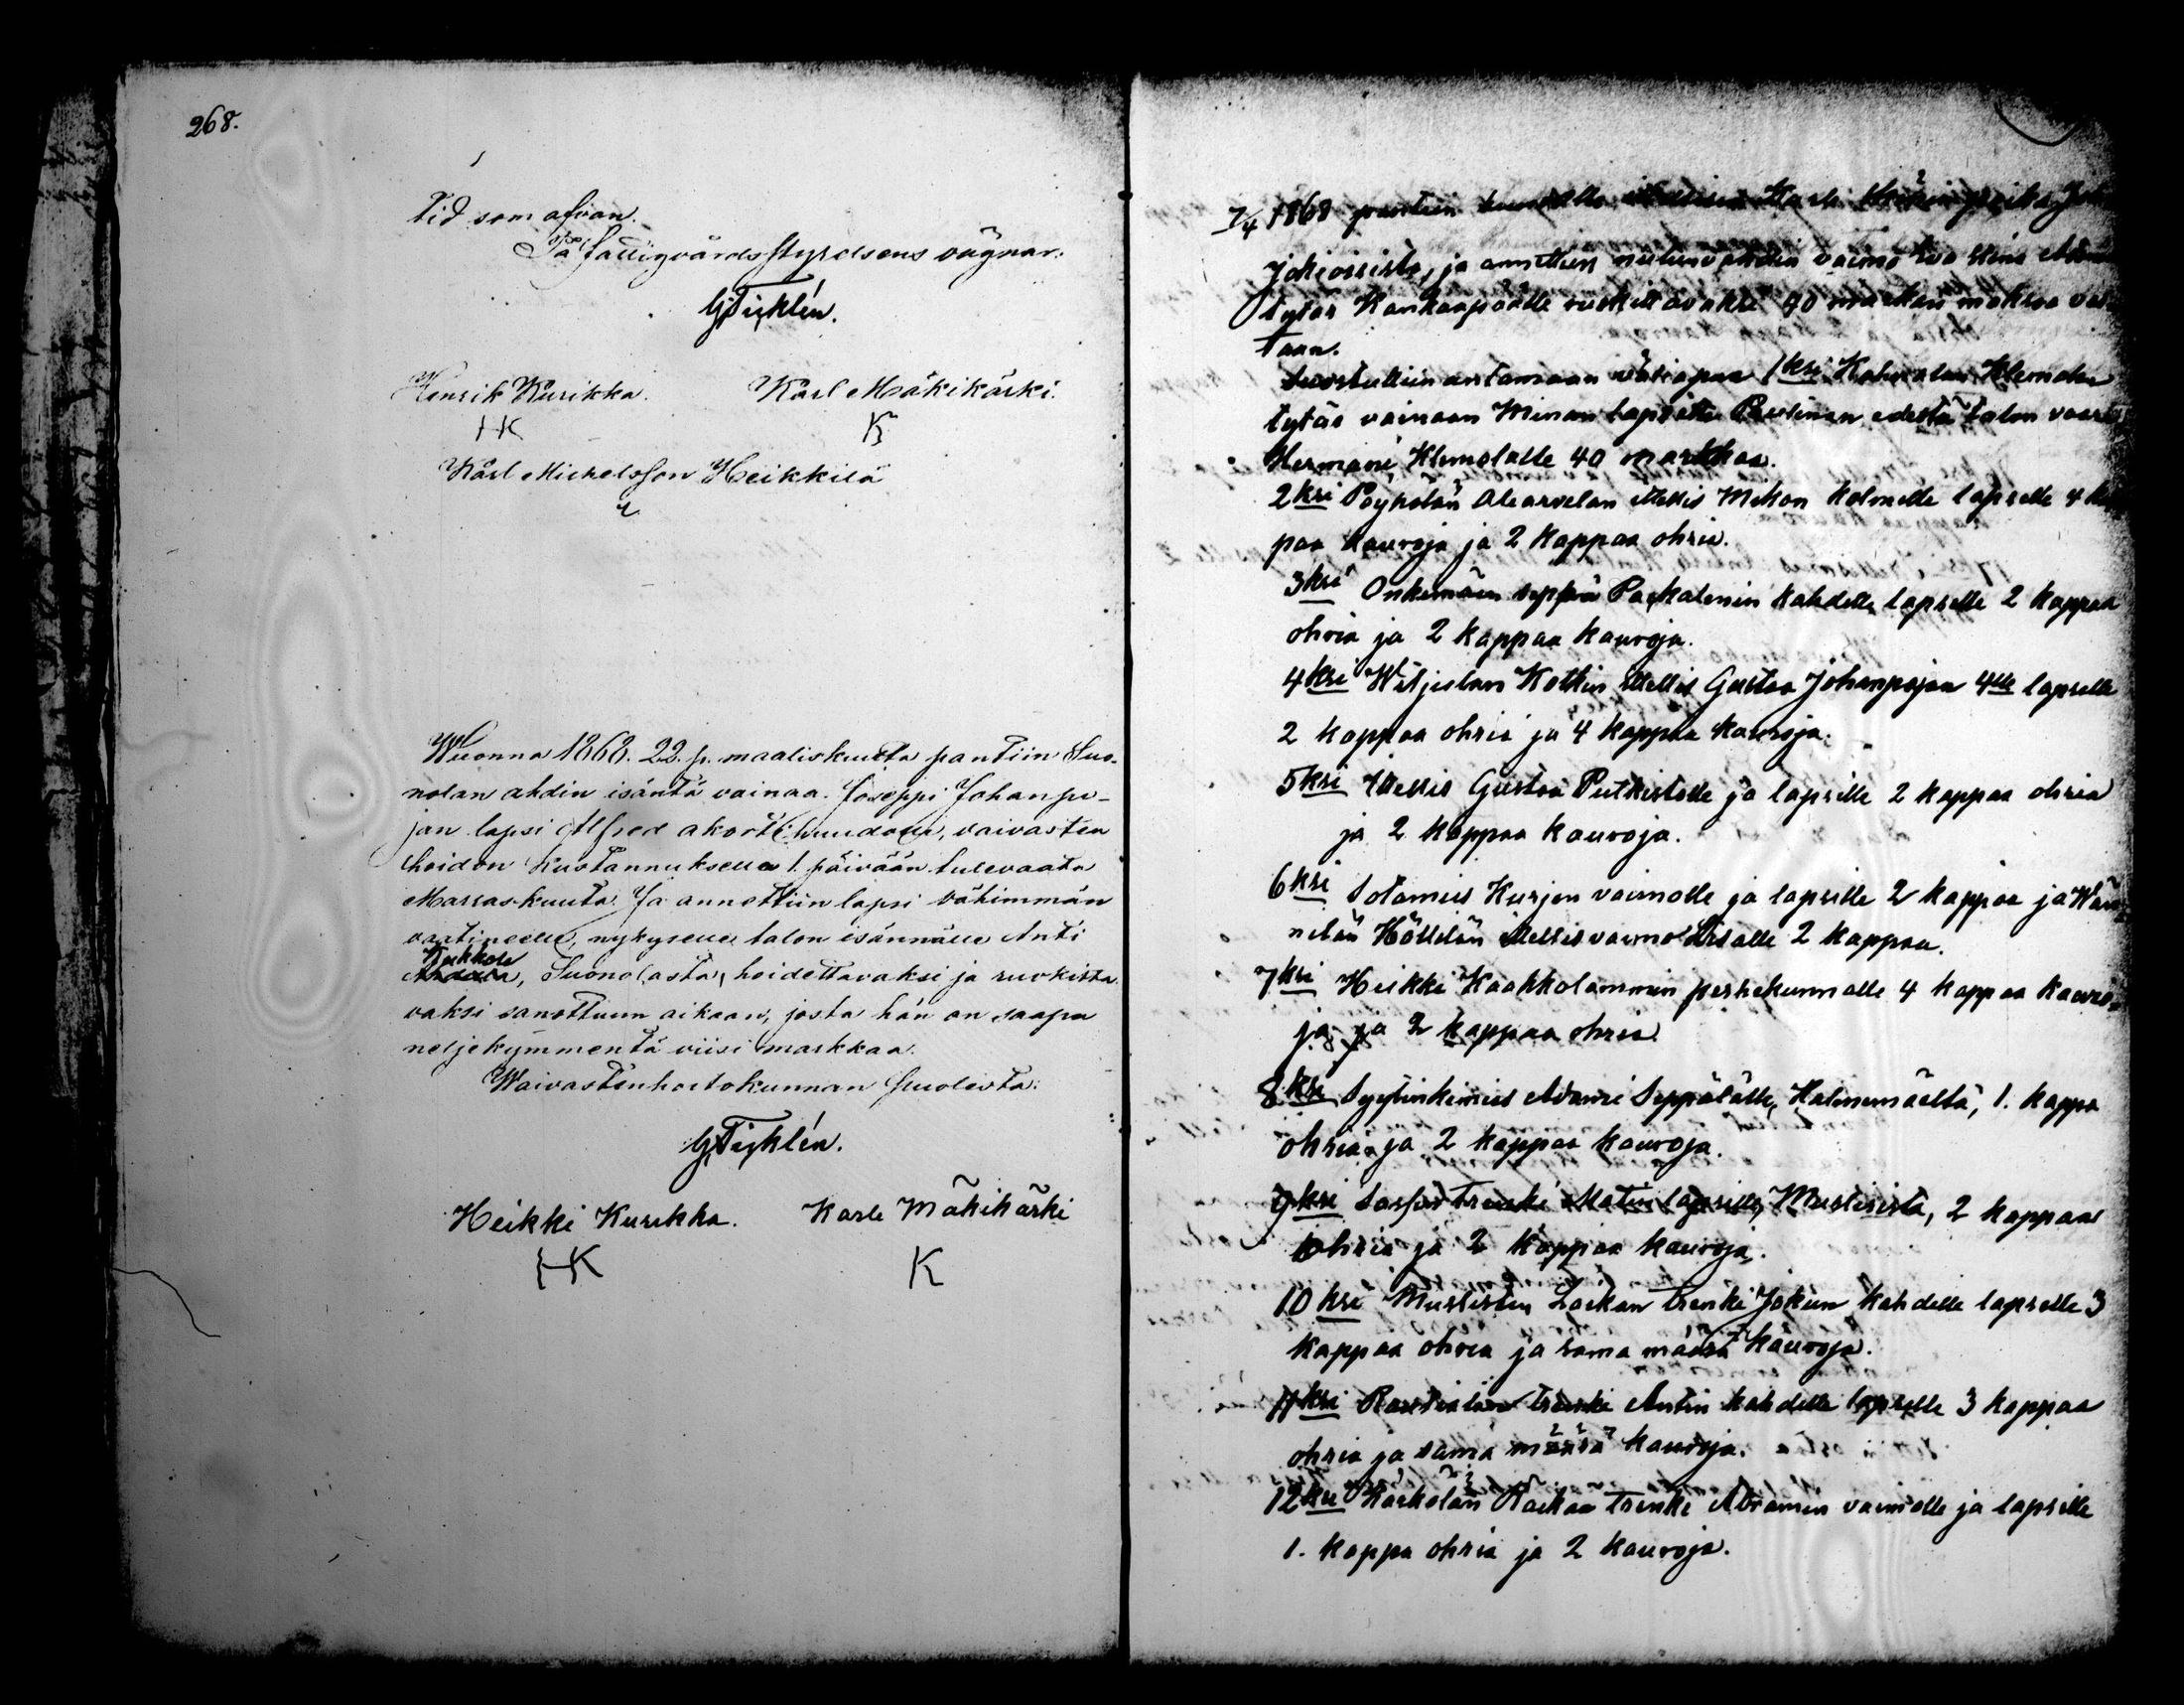 268.
Tid som ofvan.
På fattigvårds styrelsens vägnar:
G. Ticklén.
Henrik Kurikka. Karl Mäkikärski.
HK K
Karl Michelsson Heikkilä
Wuonna 1868. 22. p. maaliskuuta pantiin Suo-
nolan ahdin isäntä vainaa. Joseppi Johanpo-
jan lapsi Alfred akorti huudolla, vaivasten
hoidon kustannuksella 1. päivään tulevaata
Marraskuuta. Ja annettiin lapsi vähimmän
vaatineelle, nykyselle talon isännälle Anti
Tukkola
, Suonolasta, hoidettavaksi ja ruokitta
vaksi sanottuun aikaan, josta hän on saapa
neljekymmentä viisi markkaa.
Waivastenhoitokunnan puolesta:
G. Ticklén.
Heikki Kurikka. Karle Mäkikärki
HK K
7/4 1868 pantiin Karle poika
Jokioisista, ja annettiin vaimo Eva Stina
tytär Kankaapäälle ruokittavaksi 90 markan maksoa vas
taan.
Suostuttiin antamaan 1ksi Klemolan
tytär vainaan Minan lapsesta Paulinan edestä talon vaari
Hermanni Klemolalle 40 markkaa.
2ksi Alearvelan Itellis Mikon kolmelle lapselle 4 ka
paa kauroja ja 2 kappaa ohria.
3ksi Onkemäen seppä kahdelle lapselle 2 kappaa
ohria ja 2 kappaa kauroja.
4ksi Kottin Itellis Gustaa Johanpojan 4lle lapselle
2 kappaa ohria ja 4 kappaa kauroja.
5ksi Itellis Gustaa Putkistolle ja lapsille 2 kappaa ohria
ja 2 kappaa kauroja.
6ksi Sotamies Kurjen vaimolle ja lapsille 2 kappaa ja Wän
nilän Höllilän Itellisvaimo Liisalle 2 kappaa.
7ksi Heikki Kaakkolammin perhekunnalle 4 kappaa kauro-
ja ja 2 kappaa ohria
8ksi Syytinkimies Adami Seppälälle, Halinmäeltä, 1. kappa
ohria ja 2 kappaa kauroja.
9ksi trenki Matin lapsille, Mustisista, 2 kappaa
ohria ja 2 kappaa kauroja.
10ksi Mustisten Laikan trenki Jokiin kahdelle lapselle 3
kappaa ohria ja sama määrä kauroja.
11ksi Rautialan trenki Antin kahdelle lapselle 3 kappaa
ohria ja sama määrä kauroja.
12ksi Raikan trenki Abramin vaimolle ja lapsille
1. kappa ohria ja 2 kauroja.